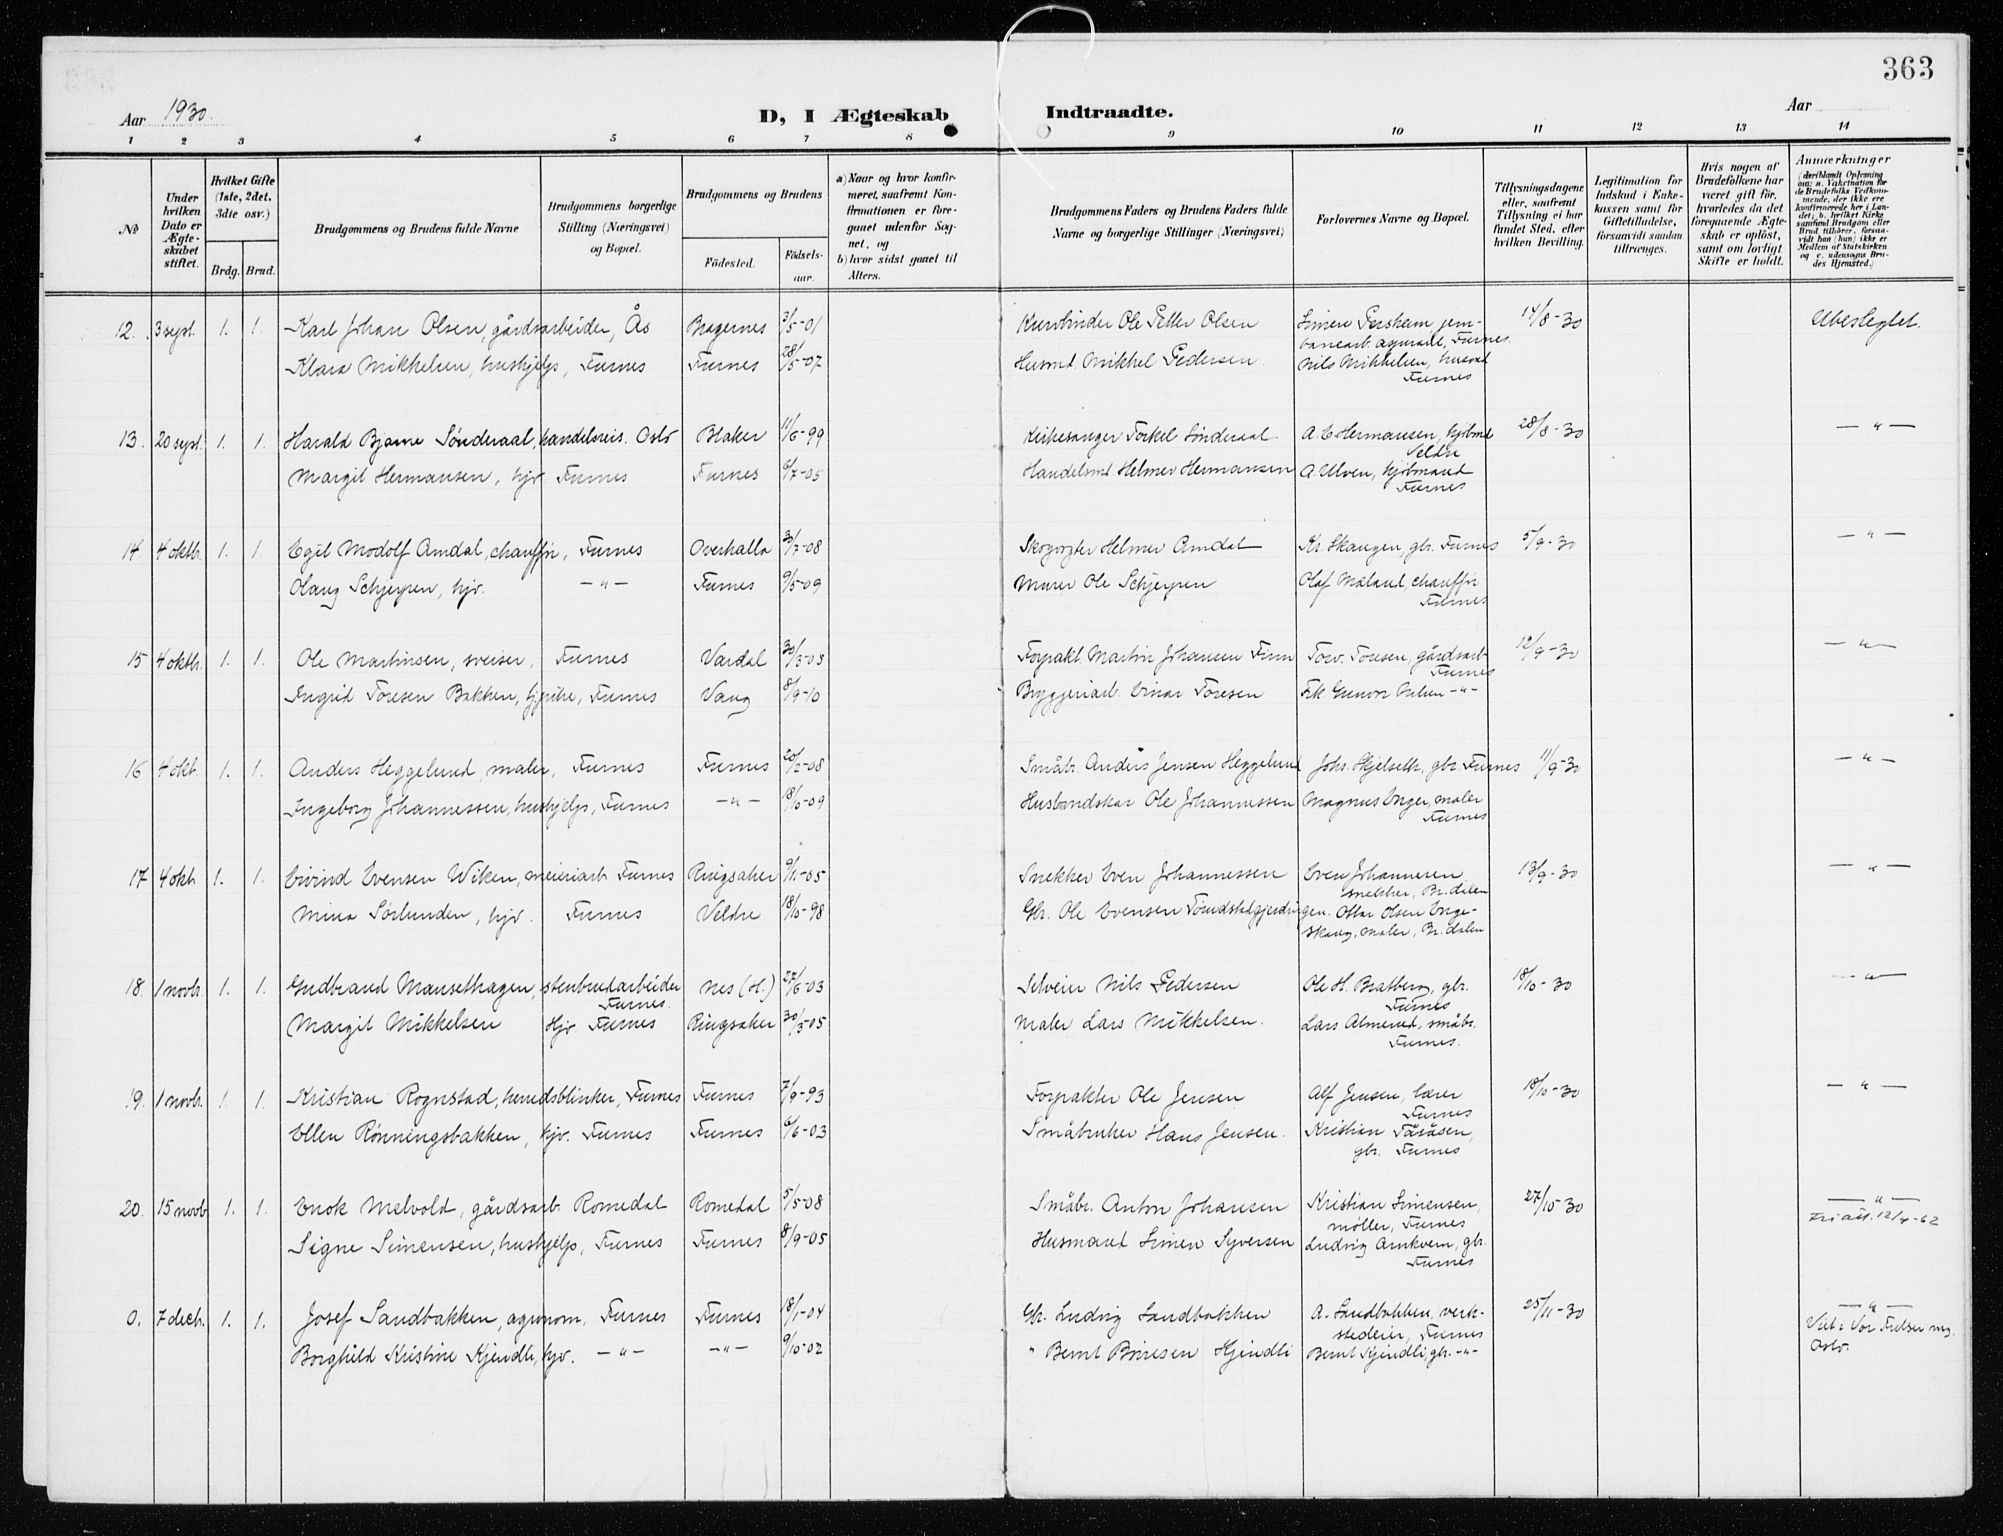 363
Aar 1930.
D, I Ægteskab Indtraadte.
Aar
1 2 3 4 5 6 7 8 9 10 11 12 13 14
№
Under hvilken Dato er Ægteskabet stiftet.
Hvilket Gifte (1ste, 2det, 3die osv.)
Brdg. Brud.
Brudgommens og Brudens fulde Navne
Brudgommens borgerlige Stilling (Næringsvei) og Bopæl.
Brudgommens og Brudens
Födested. Födselsaar.
a) Naar og hvor konfirmeret, saafremt Konfirmationen er foregaaet udenfor Sognet, og
b) hvor sidst gaaet til Alters.
Brudgommens Faders og Brudens Faders fulde Navne og borgerlige Stillinger (Næringsvei)
Forlovernes Navne og Bopæl.
Tillysningsdagene eller, saafremt Tillysning ei har fundet Sted, efter hvilken Bevilling.
Legitimation for Indskud i Enkekassen samt for Giftetilladelse, forsaavidt saadan tiltrænges.
Hvis nogen af Brudefolkene har været gift før, hvorledes da det foregaaende Ægteskab er opløst, samt om lovligt Skifte er holdt.
Anmærkninger (deriblandt Oplysning om: a. Vakcination for de Brudefolks Vedkommende, der ikke ere konfirmerede her i Landet; b. hvilket Kirkesamfund Brudgom eller Brud tilhører, forsaavidt han (hun) ikke er Medlem af Statskirken og c. udensogns Brudes Hjemsted.)
12. 3 sept. 1. 1. Karl Johan Olsen, gårdsarbeider, Ås Bragernes 3/5-01 Kurvbinder Ole Petter Olsen Simen Perskam, jernbanearb. Furnes. 14/8-30 Ubeslegtet.
Klara Mikkelsen, hushjelp, Furnes Furnes 28/5-07 Husmd. Mikkel Pedersen. Nils Mikkelsen, Furnes
13. 20 sept. 1. 1. Harald Bjarne Sønderaal, handelsreis. Oslo Blaker 11/6-99 Kirkesanger Torkel Sønderaal A. C Hermansen, kjøbmd Veldre 28/8-30 — " —
Margit Hermansen, hjv. Furnes Furnes 6/7-05 Handelsmd Helmer Hermansen A. Ulven, kjøbmand Furnes
14. 4 oktb. 1. 1. Egil Modolf Amdal, chauffør, Furnes Overhalla 30/7-08 Skogvogter Helmer Amdal Kr. Skaugen, gbr. Furnes 5/9-30 — " —
Olaug Schjerpen, hjv. — " — Furnes 9/5-09 Murer Ole Schjerpen Olaf Mæland, chauffør Furnes
15 4 oktb. 1. 1. Ole Martinsen, sveiser, Furnes Vardal 30/3-03 Forpakt. Martin Johansen Finn Torv. Toresen, gårdsarb. Furnes 12/9-30 — " —
Ingrid Toresen Bakken, Furnes Vang 8/9-10 Bryggeriarb. Einar Toresen Frk Gunvor Nilsen — " —
16 4 okt. 1. 1. Anders Heggelund, maler, Furnes Furnes 20/2-08 Småbr. Anders Jensen Heggelund Johs. Skjelseth, gbr. Furnes 11/9-30 — " —
Ingeborg Johannessen, hushjelp, Furnes — " — 18/10-09 Husbondskar Ole Johannessen Magnus Enger, maler Furnes
17 4 okt. 1. 1. Eivind Evensen Wiken, meieriarb. Furnes Ringsaker 9/11-05 Snekker Even Johannessen Even Johannesen snekker, Br.dalen 13/9-30 — " —
Mina Sørlunden, hjv. Furnes Veldre 18/10-98 Gbr. Ole Evensen Tomdstadgjerdningen. Ottar Olsen Engeskaug, maler, Br.dalen
18. 1 novb. 1. 1. Gudbrand Mansethagen, stenbrudarbeider Furnes. Nes (H.) 27/6-03 Selveier Nils Pedersen Ole H. Bratberg, gbr. Furnes 18/10-30 — " —
Margit Mikkelsen Hjv. Furnes Ringsaker 30/5-05 Maler Lars Mikkelsen. Lars Almerud, småbr. Furnes.
19. 1 novb. 1. 1. Kristian Rognstad, herredsblinker, Furnes Furnes 7/9-93 Forpakter Ole Jensen Alf Jensen, lærer Furnes 18/10-30 — " —
Ellen Rønningsbakken, hjv. Furnes Furnes 6/6-03 Småbruker Hans Jensen. Kristian Tåsåsen, gbr. Furnes
20. 15 novb 1. 1. Enok Melvold, gårdsarb. Romedal Romedal 5/5-08 Småbr. Anton Johansen Kristian Simensen, møller, Furnes 27/10-30 — " —
Fri att. 12/4-62
Signe Simensen, hushjelp, Furnes Furnes 8/9-05 Husmand Simen Syversen Ludvig Arnkvern, gbr. Furnes
0. 7 decb. 1. 1. Josef Sandbakken, agronom, Furnes Furnes 18/1-04 Gbr. Ludvig Sandbakken A. Sandbakken, verkstedeier, Furnes 25/11-30 — " —
Viet i Vor Frelser mg. Oslo.
Borghild Kristine Kjendli, hjv. — " — — " — 9/10-02 " Bernt Børesen Kjendli Bernt Kjendli, gbr. — " —